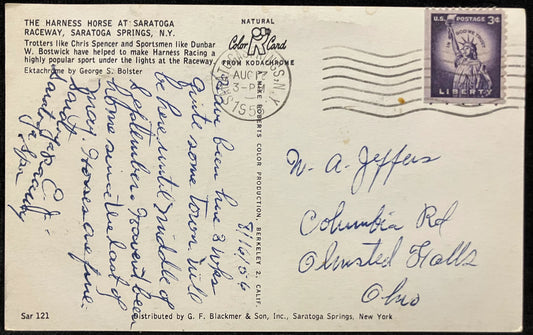 THE HARNESS HORSE AT SARATOGA
RACEWAY, SARATOGA SPRINGS, N.Y.
Trotters like Chris Spencer and Sportsmen like Dunbar
W. Bostwick have helped to make Harness Racing a
highly popular sport under the lights at the Raceway.
Ektachrome by George S. Bolster
NATURAL
Color Card
FROM KODACHROME
MIKE ROBERTS COLOR PRODUCTION, BERKELEY 2, CALIF.
SARATOGA SPRINGS, N.Y.
AUG
3-PM
195
U.S. POSTAGE 3¢
IN GOD WE TRUST
LIBERTY
8/16/54
Have been here 3 wks
quite some town will
be here until middle of
September. Haven't been
home since the last of
May. Horses are fine.
Saratoga Raceway
W. A. Jeffers
Columbia Rd
Olmsted Falls
Ohio
Sar 121
Distributed by G. F. Blackmer & Son, Inc., Saratoga Springs, New York